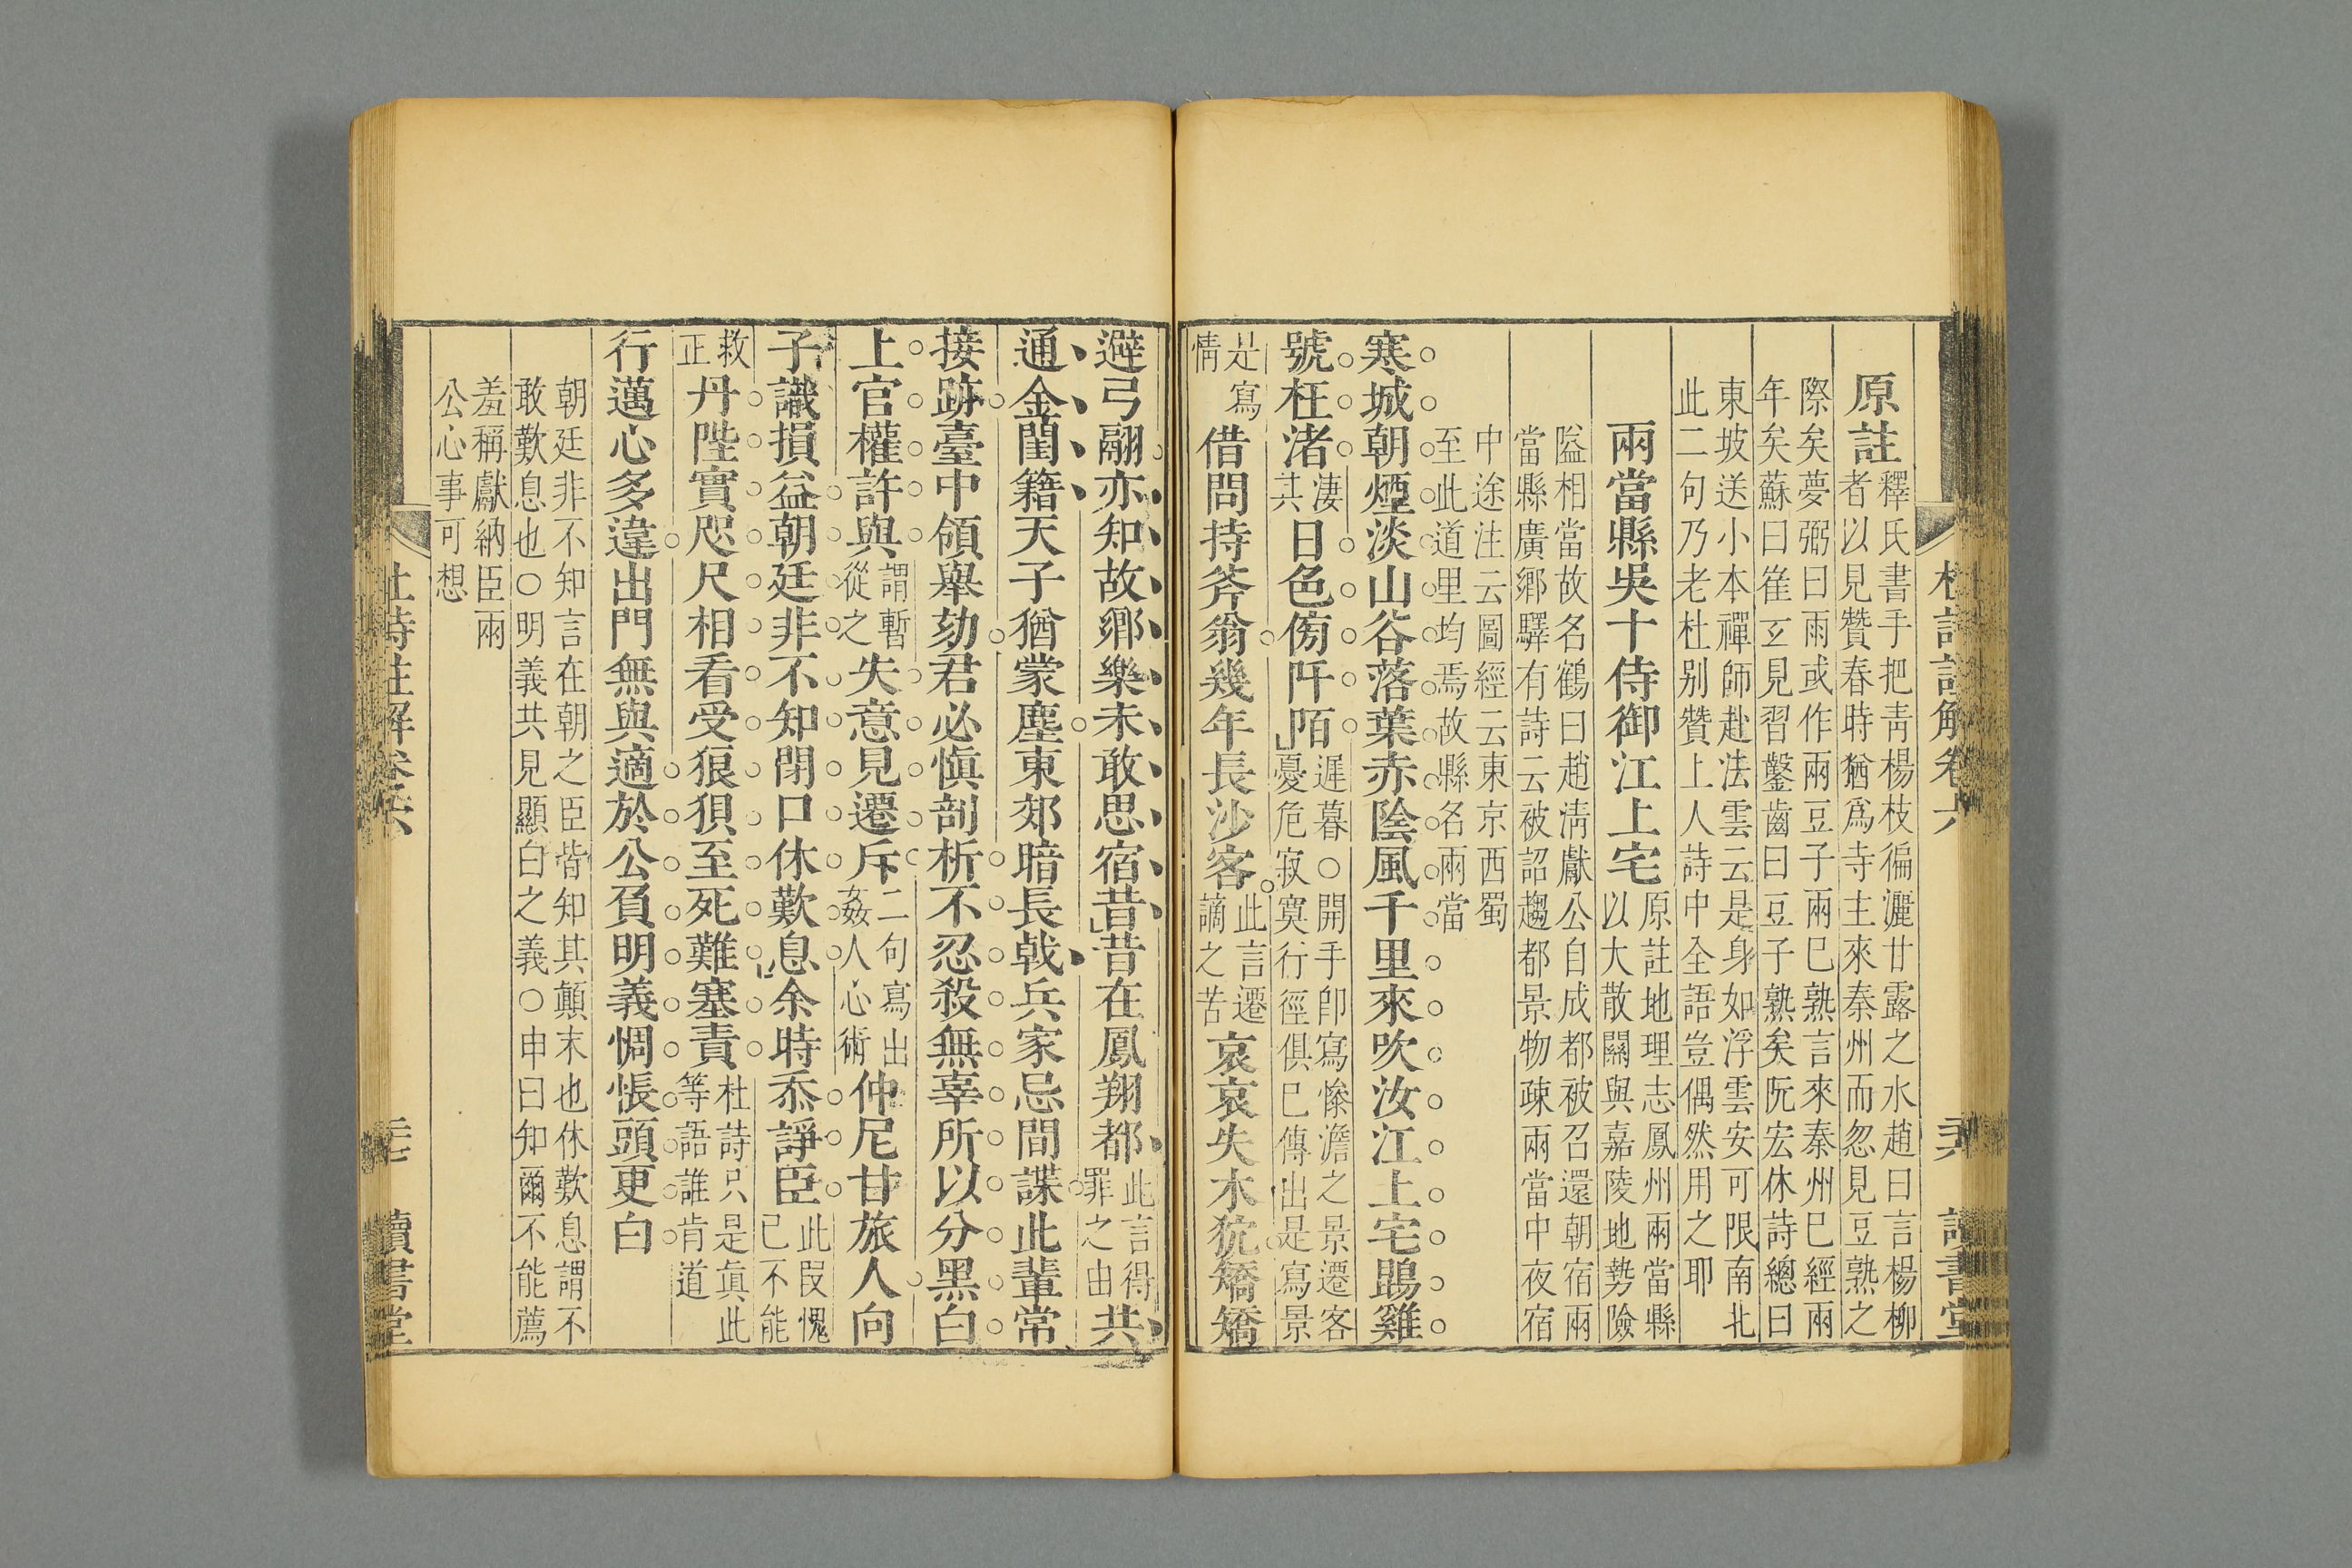 杜詩註解卷六
二十六
讀書堂
原註
釋氏書手把青楊枝徧灑甘露之水趙曰言楊柳
者以見贊春時猶爲寺主來秦州而忽見豆熟之
際矣夢弼曰雨或作兩豆子兩巳熟言來秦州巳經兩
年矣蘇曰隺㕛見習鑿齒曰豆子熟矣阮宏休詩總曰
東坡送小本禪師赴法雲云是身如浮雲安可限南北
此二句乃老杜别贊上人詩中全語豈偶然用之耶
兩當縣吳十侍御江上宅
原註地理志鳳州兩當縣
以大散關與嘉陵地勢險
隘相當故名鶴曰趙清獻公自成都被召還朝宿兩
當縣廣鄉驛有詩云被詔趨都景物疎兩當中夜宿
中途注云圖經云東京西蜀
至此道里均焉故縣名兩當
寒城朝煙淡山谷落葉赤陰風千里來吹汝江上宅鵾雞
號枉渚
淒
其
日色傍阡陌
遲暮○開手卽寫慘澹之景遷客
憂危寂寞行徑俱巳傳出是寫景
是寫
情
借問持斧翁幾年長沙客
此言遷
謫之苦
哀哀失木狖矯矯
避弓翮亦知故鄉樂未敢思宿昔昔在鳳翔都
此言得
罪之由
共
通金閨籍天子猶蒙塵東郊暗長戟兵家忌間諜此輩常
接跡臺中領舉劾君必愼剖析不忍殺無辜所以分黑白
上官權許與
謂暫
從之
失意見遷斥
二句寫出
姦人心術
仲尼甘旅人向
子識損益朝廷非不知閉口休歎息余時忝諍臣
此叚愧
已不能
救
正
丹陛實咫尺相看受狼狽至死難塞責
杜詩只是眞此
等語誰肯道
行邁心多違出門無與適於公負明義惆悵頭更白
朝廷非不知言在朝之臣皆知其顛末也休歎息謂不
敢歎息也○明義共見顯白之義○申曰知爾不能薦
羞稱獻納臣兩
公心事可想
杜詩註解卷六
二十七
讀書堂